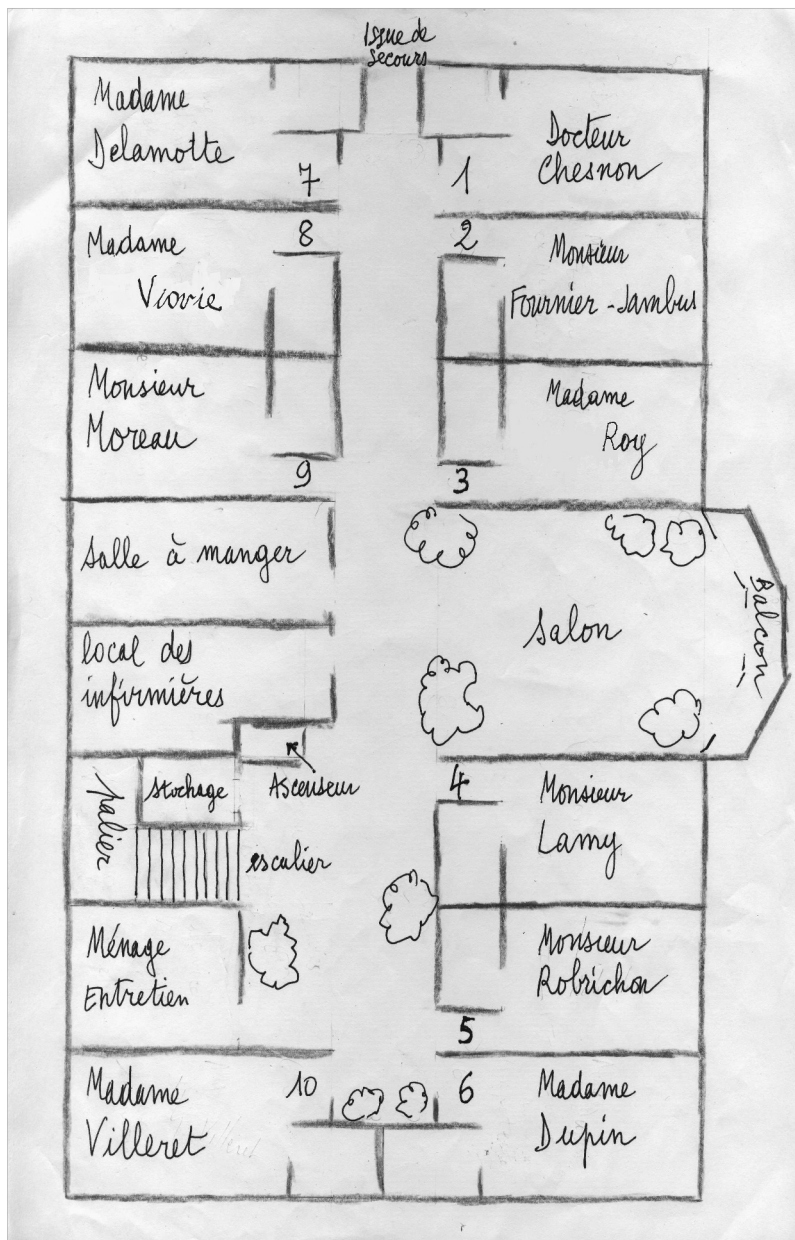 Issue de
secours
Madame
Delamotte
7
1
Docteur
Chesnon
Madame
Viovie
8
2
Monsieur
Fournier-Jambus
Monsieur
Moreau
9
3
Madame
Roy
Salle à manger
Salon
Balcon
local des
infirmières
palier
Stochage
Ascenseur
escalier
4
Monsieur
Lamy
Ménage
Entretien
Monsieur
Robrichon
5
Madame
Villeret
10
6
Madame
Dupin